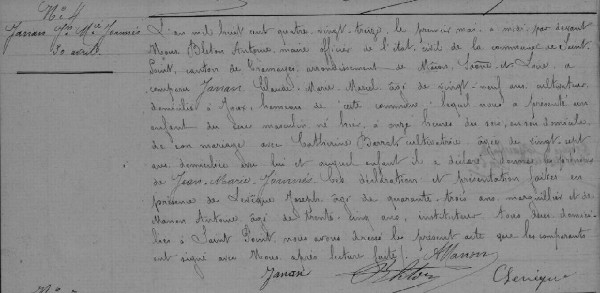 N° 4
Janan Jn Mie Joannès
30 avril
L'an mil huit cent quatre vingt-treize, le premier mai, à midi, par devant
Nous Bleton Antoine, maire officier de l'état civil de la commune de Saint-
Point, canton de Tramayes, arrondissement de Mâcon, Saône et Loire, a
comparu Janan Claude-Marie Marcel âgé de vingt-neuf ans cultivateur
domicilié à Joux, hameau de cette commune; lequel nous a présenté un
enfant du sexe masculin né hier, à onze heures du soir, en son domicile
de son mariage avec Catherine cultivatrice âgée de vingt-sept
ans demeurant avec lui et auquel enfant il a déclaré donner les prénoms
de Jean-Marie-Joannès. Les déclaration et présentation faites en
présence de Joseph âgé de quarante-trois ans, marguillier et de
Manon Antoine âgé de trente cinq ans, instituteur tous deux domici-
liés à Saint Point, nous avons dressé le présent acte que les comparants
ont signé avec Nous, après lecture faite. AManon
Janan